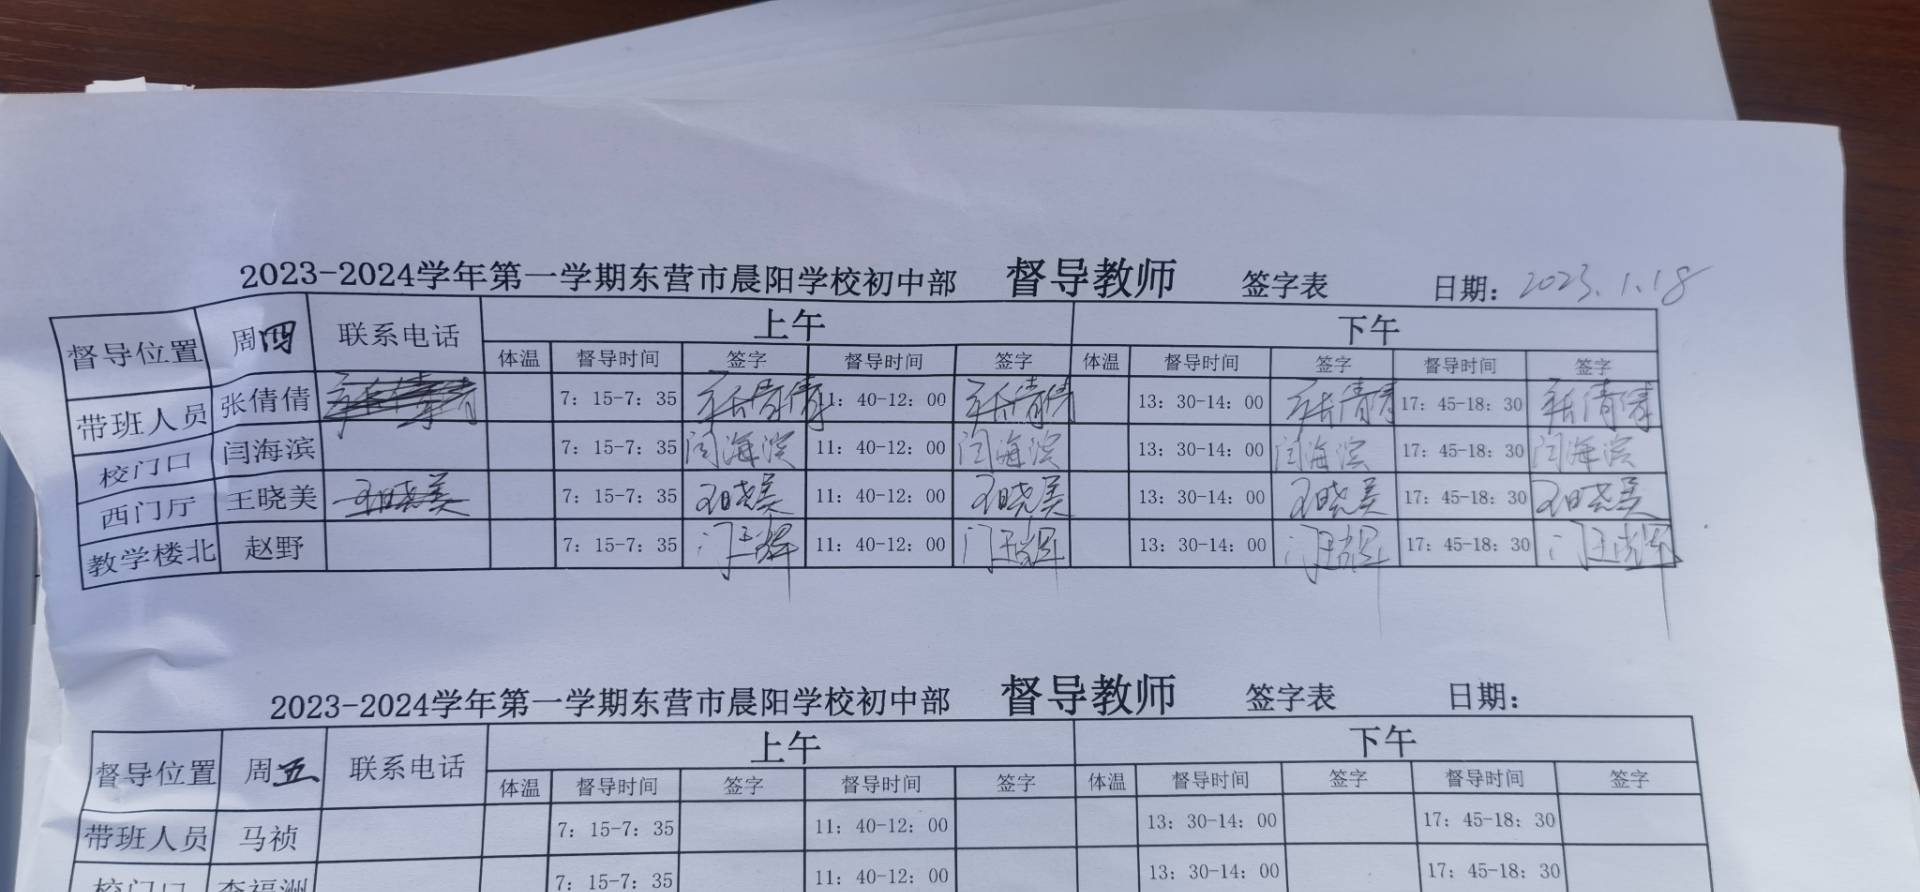 2023-2024学年第一学期东营市晨阳学校初中部 督导教师 签字表 日期：2023.1.18
督导位置 周四 联系电话 上午 下午
体温 督导时间 签字 督导时间 签字 体温 督导时间 签字 督导时间 签字
带班人员 张倩倩 7：15-7：35 张倩倩 11：40-12：00 张倩倩 13：30-14：00 张倩倩 17：45-18：30 张倩倩
校门口 闫海滨 7：15-7：35 闫海滨 11：40-12：00 闫海滨 13：30-14：00 闫海滨 17：45-18：30 闫海滨
西门厅 王晓美 王晓美 7：15-7：35 王晓美 11：40-12：00 王晓美 13：30-14：00 王晓美 17：45-18：30 王晓美
教学楼北 赵野 7：15-7：35 11：40-12：00 13：30-14：00 17：45-18：30
2023-2024学年第一学期东营市晨阳学校初中部 督导教师 签字表 日期：
督导位置 周五 联系电话 上午 下午
体温 督导时间 签字 督导时间 签字 体温 督导时间 签字 督导时间 签字
带班人员 马祯 7：15-7：35 11：40-12：00 13：30-14：00 17：45-18：30
校门口 李福洲 7：15-7：35 11：40-12：00 13：30-14：00 17：45-18：30